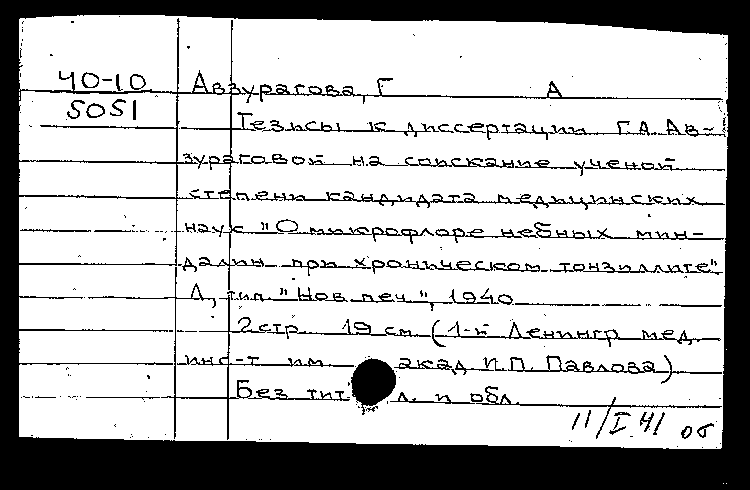 40-10
5051
Авзурагова, Г А
Тезисы к диссертации Г.А. Ав-
зураговой на соискание ученой
степени кандидата медицинских
наук "О микрофлоре небных мин-
далин при хроническом тонзиллите".
Л, тип. "Нов. печ", 1940
2 стр 19 см (1-й Ленингр мед.
инс-т им акад И.П. Павлова)
Без тит л. и обл.
11/I 41 об